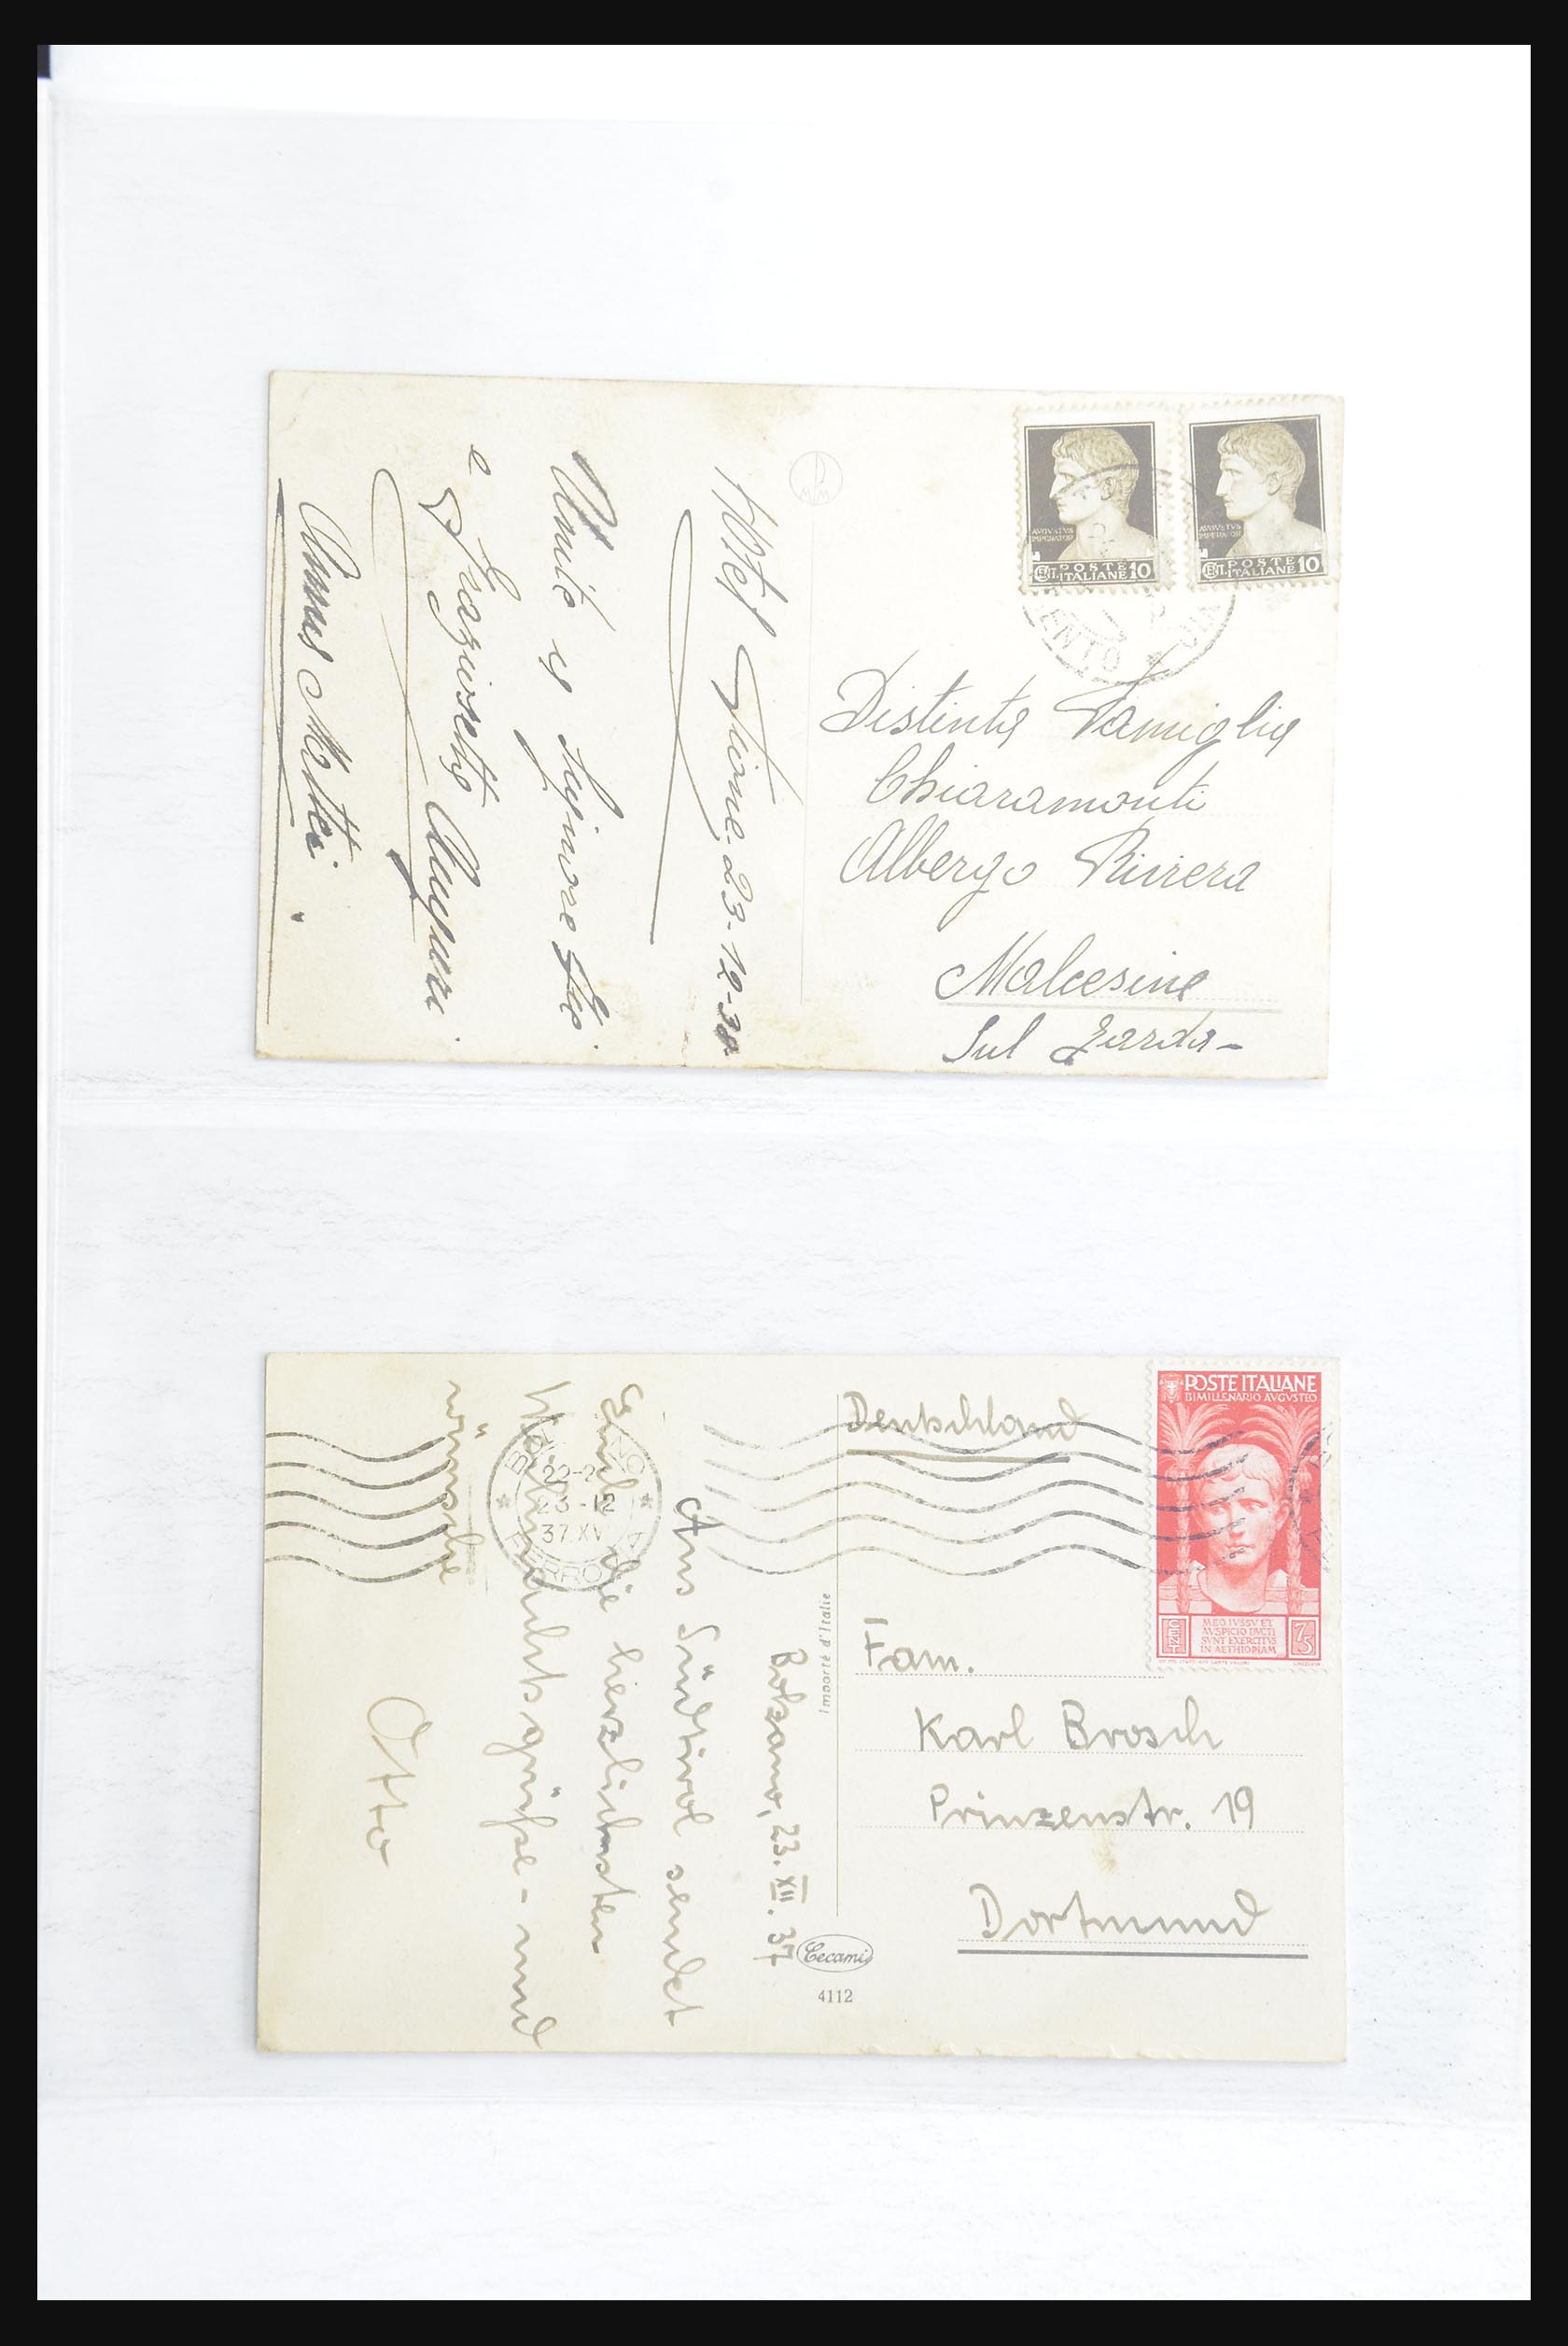 Hotel Tione 23-12-38
Unite è Signore
e Graziosetto Auguri.
Mattei
AVGVSTVS
IMPERATOR
CENT. POSTE ITALIANE 10
AVGVSTVS
IMPERATOR
CENT. POSTE ITALIANE 10
Distinta Famiglia
Chiaramonti
Albergo Riviera
Malcesine
Sul Garda-
Bolzano, 23. XII. 37
Aus Südtirol sendet
Euch die herzlichsten
Weihnachtsgrüße - und
wünsche
Otto
22-2
23-12
37 XVI
FERROVIA
Importé d'Italie
Cecami
4112
Deutschland
POSTE ITALIANE
BIMILLENARIO AVGVSTEO
MEO IVSSV ET
AVSPICIO DVCTI
SVNT EXERCITVS
IN AETHIOPIAM
CENT 75
Fam.
Karl Brosch
Prinzenstr. 19
Dortmund